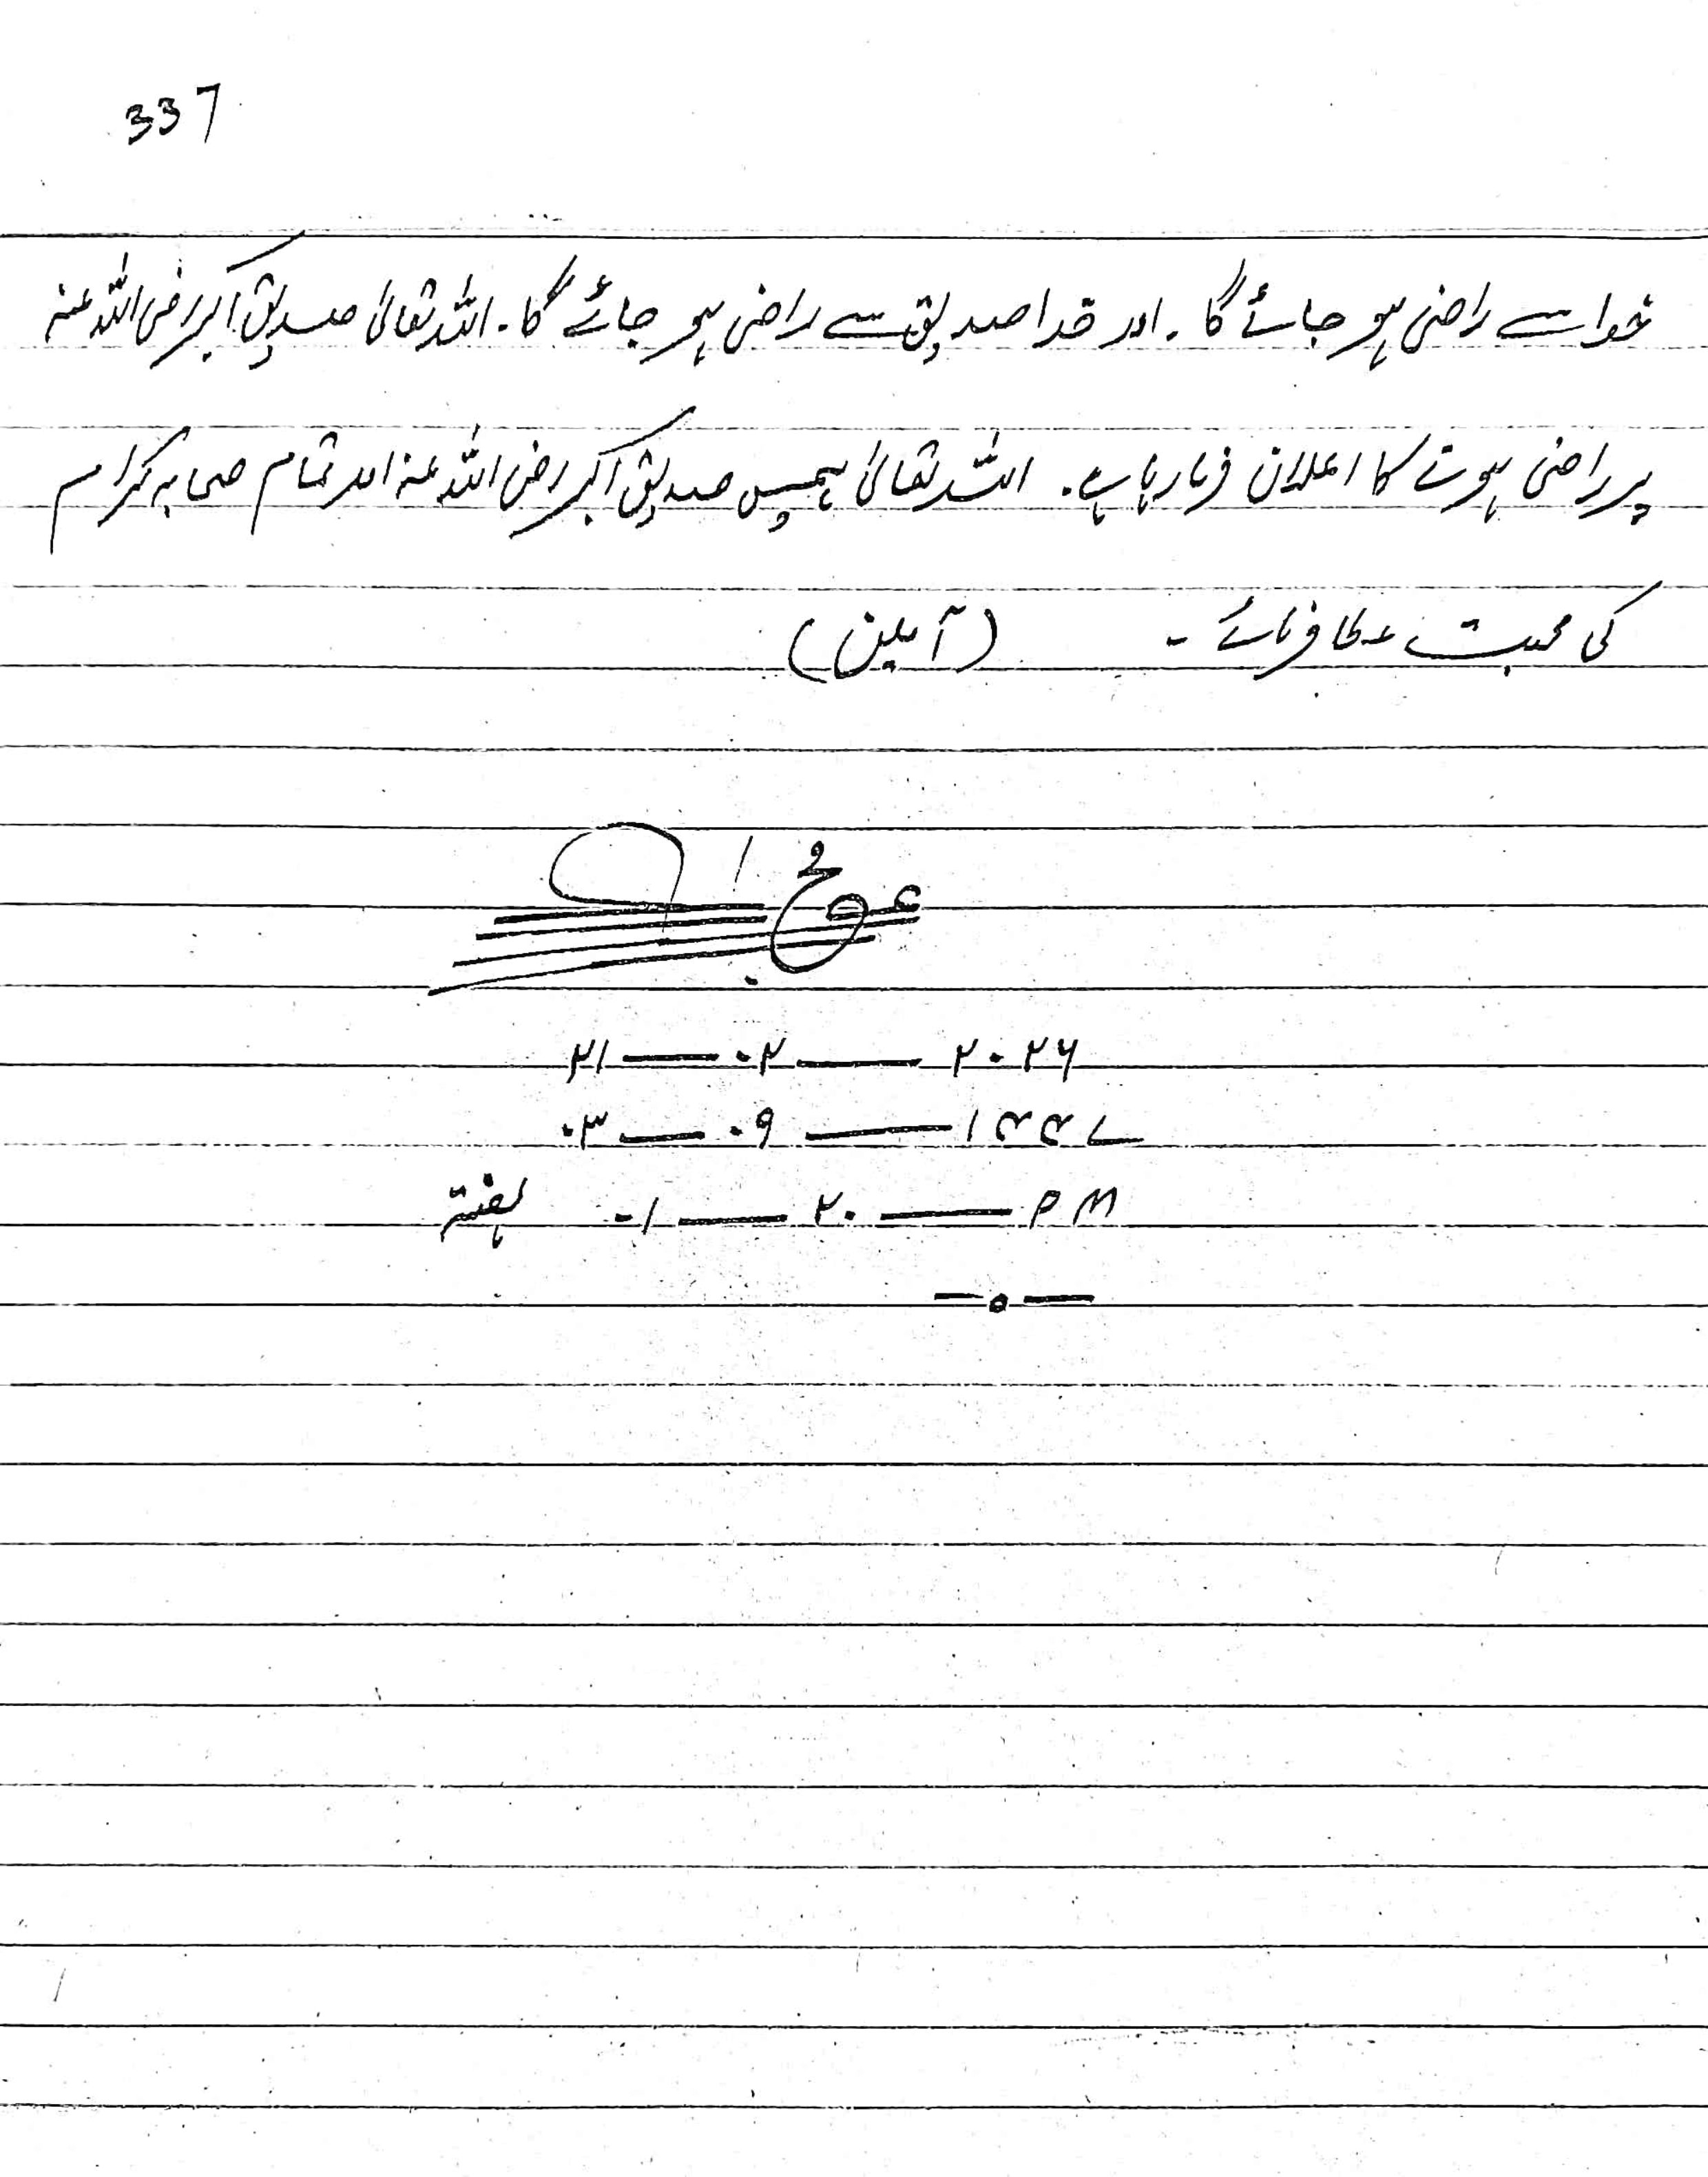 337
خدا سے راضی ہو جائے گا۔ اور خدا صدیق سے راضی ہو جائے گا۔ اللہ تعالیٰ صدیق اکبر رضی اللہ عنہ
پر راضی ہونے کا اعلان فرما رہا ہے۔ اللہ تعالیٰ ہمیں صدیق اکبر رضی اللہ عنہ اور تمام صحابہ کرام
کی محبت عطا فرمائے۔ (آمین)
۲۱ — ۰۲ — ۲۰۲۶
۰۳ — ۰۹ — ۱۴۴۷
۰۱ — ۲۰ — PM ہفتہ
—٥—